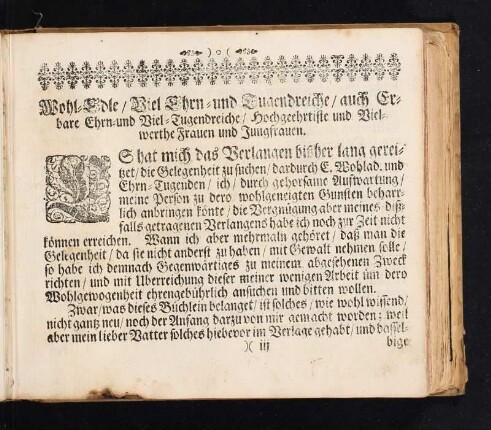 ) o (
Wohl-Edle / Viel Ehrn- und Tugendreiche / auch Er-
bare Ehrn- und Viel-Tugendreiche / Hochgeehrtiste und Viel-
werthe Frauen und Jungfrauen.
ES hat mich das Verlangen bißher lang gerei-
tzet / die Gelegenheit zu suchen / dardurch E. Wohlad. und
Ehrn-Tugenden / ich / durch gehorsame Auffwartung /
meine Person zu dero wohlgeneigten Gunsten beharr-
lich anbringen könte / die Vergnügung aber meines diß-
falls getragenen Verlangens habe ich noch zur Zeit nicht
können erreichen. Wann ich aber mehrmaln gehöret / daß man die
Gelegenheit / da sie nicht anderst zu haben / mit Gewalt nehmen solle /
so habe ich demnach Gegenwärtiges zu meinem abgesehenen Zweck
richten / und mit Uberreichung dieser meiner wenigen Arbeit üm dero
Wohlgewogenheit ehrengebührlich ansuchen und bitten wollen.
Zwar / was dieses Büchlein belanget / ist solches / wie wohl wissend /
nicht gantz neu / noch der Anfang darzu von mir gemacht worden; weil
aber mein lieber Vatter solches hiebevor im Verlage gehabt / und dassel-
)( iij bige